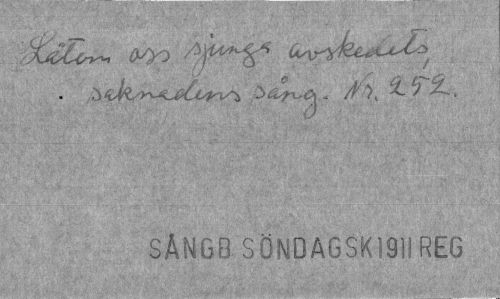 Låtom oss sjunga avskedets,
saknadens sång. Nr. 252.
SÅNGB SÖNDAGSK 1911 REG